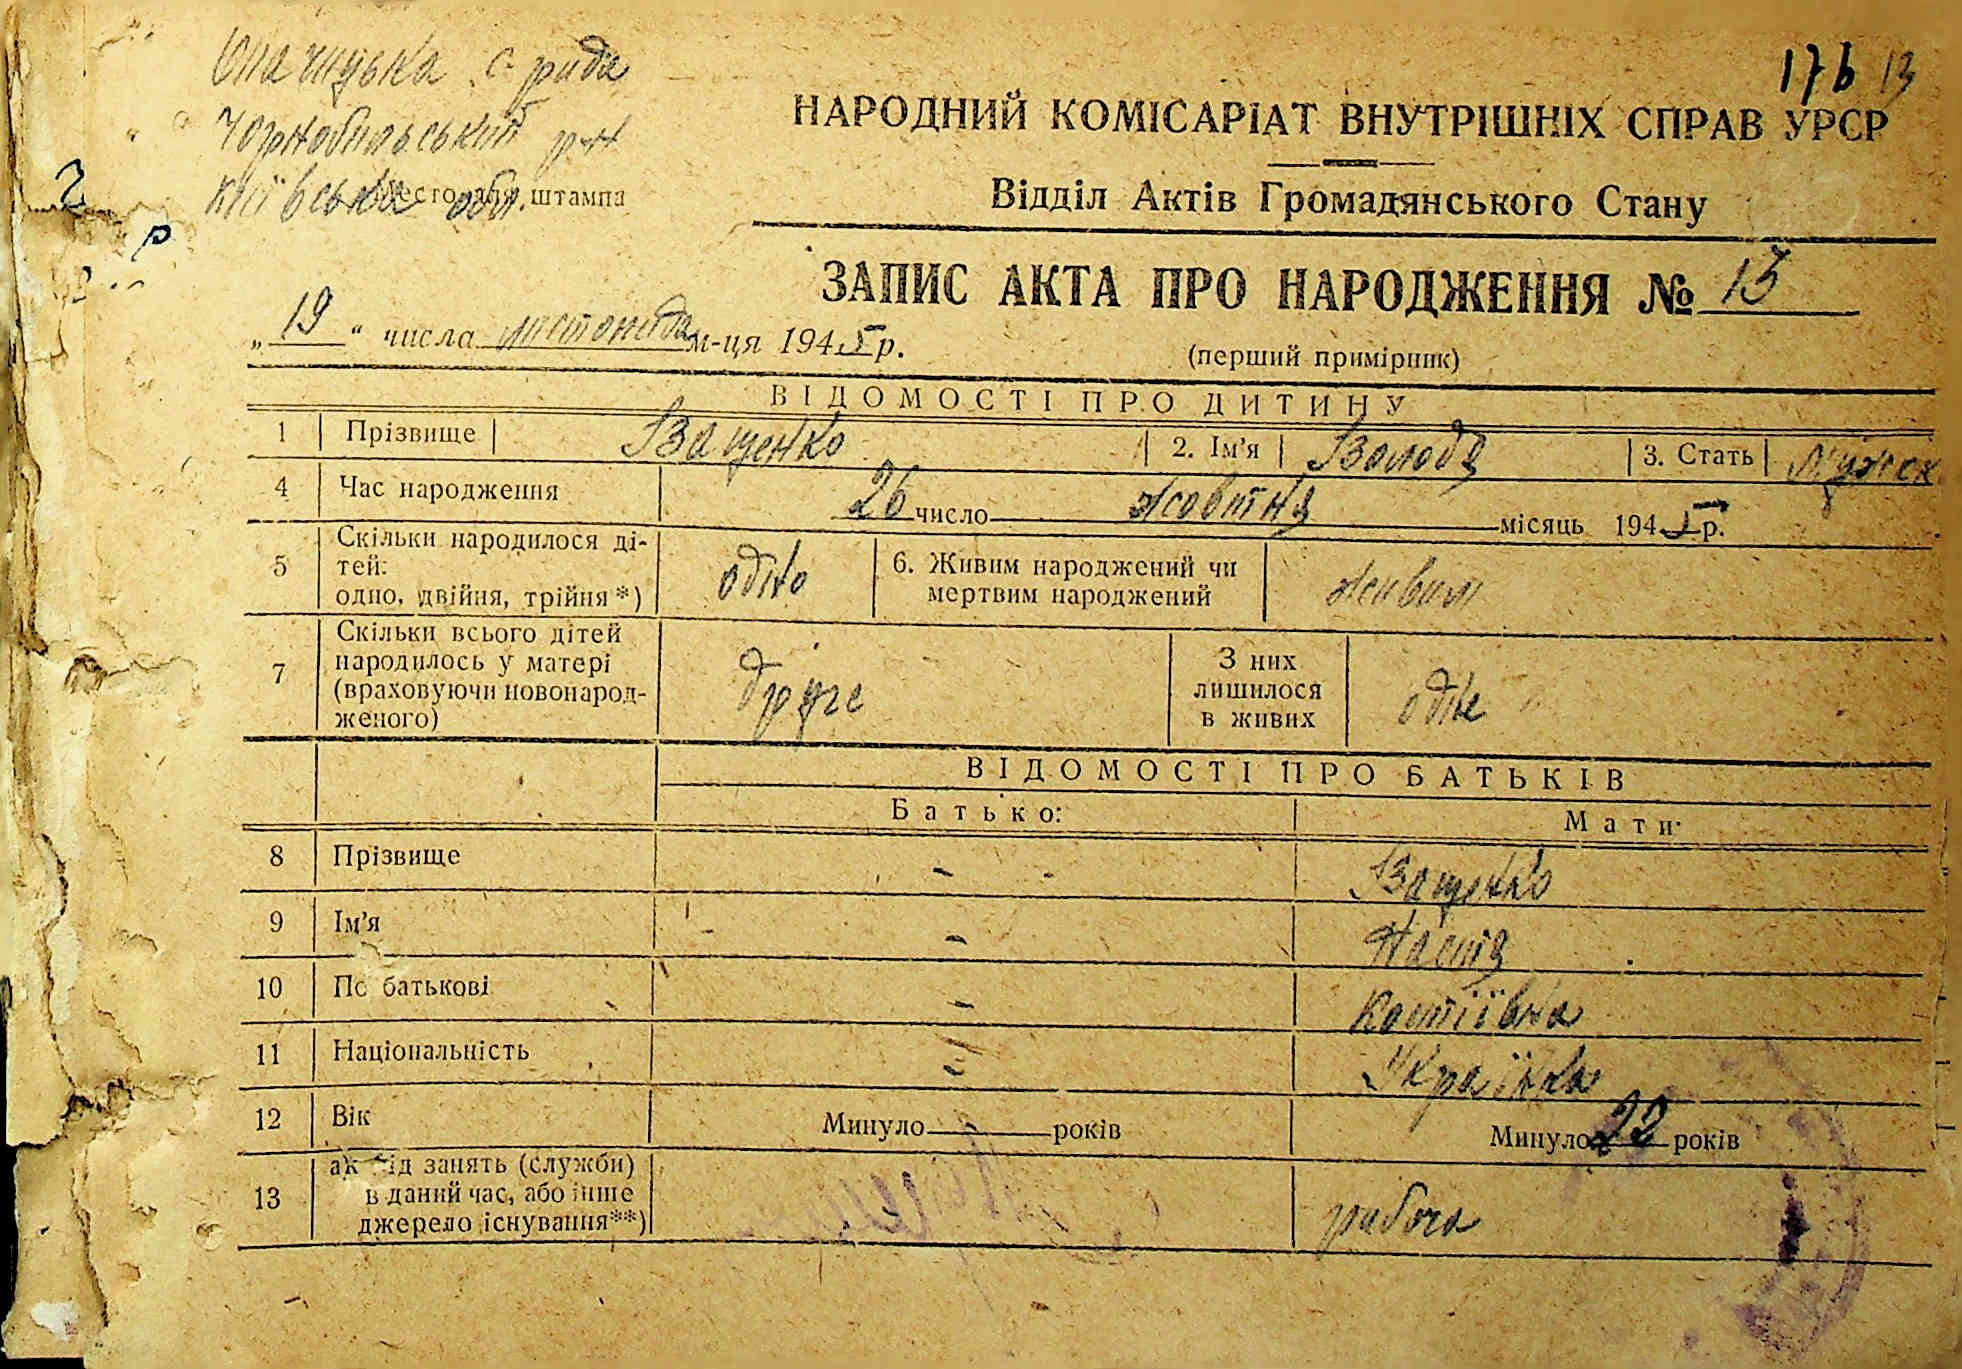 Опачицька с рада
Чорнобильський р-н
Київська обл.
Место для штампа
17б 13
НАРОДНИЙ КОМІСАРІАТ ВНУТРІШНІХ СПРАВ УРСР
Відділ Актів Громадянського Стану
ЗАПИС АКТА ПРО НАРОДЖЕННЯ № 13
„19“ числа листопада м-ця 1945 р.
(перший примірник)
ВІДОМОСТІ ПРО ДИТИНУ
1 Прізвище Ващенко 2. Ім'я Володя 3. Стать Мужск
4 Час народження 26 число жовтня місяць 1945 р.
5 Скільки народилося ді-
тей:
одно, двійня, трійня*) одно
6. Живим народжений чи
мертвим народжений живим
7 Скільки всього дітей
народилось у матері
(враховуючи новонарод-
женого) друге
З них
лишилося
в живих одне
ВІДОМОСТІ ПРО БАТЬКІВ
Батько: Мати:
8 Прізвище - Ващенко
9 Ім'я - Настя
10 По батькові - Костіївна
11 Національність - Українка
12 Вік Минуло - років Минуло 22 років
13 ак від занять (служби)
в даний час, або інше
джерело існування**) рабоча